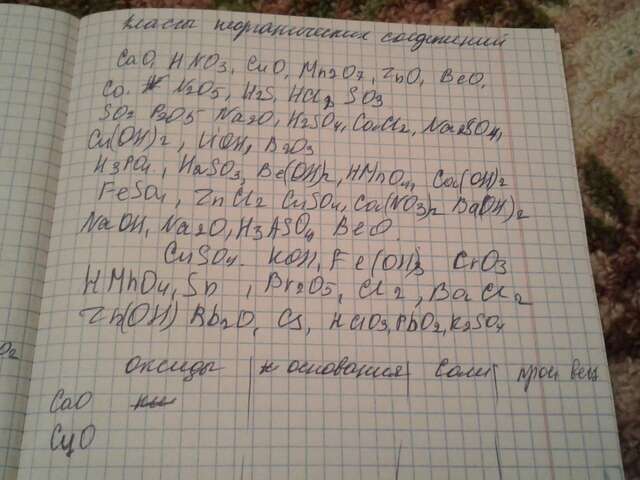 классы неорганических соединений
CaO, HNO3, CuO, Mn2O7, ZnO, BeO,
Co. N2O5, H2S, HCl, SO3
SO2 P2O5 Na2O, H2SO4, CaCl2, Na2SO4,
Cu(OH)2, LiOH, B2O3
H3PO4, H2SO3, Be(OH)2, HMnO4, Ca(OH)2
FeSO4, ZnCl2 CuSO4, Ca(NO3)2 Ba(OH)2
NaOH, Na2O, H3ASO4 BeO.
CuSO4. KOH, Fe(OH)3 CrO3
HMnO4, Sn, Br2O5, Cl2, BaCl2
Zn(OH) Rb2O, Cs, HClO3, PbO2, K2SO4
оксиды | основания | Соли | прои вещ
CaO
CuO
O2